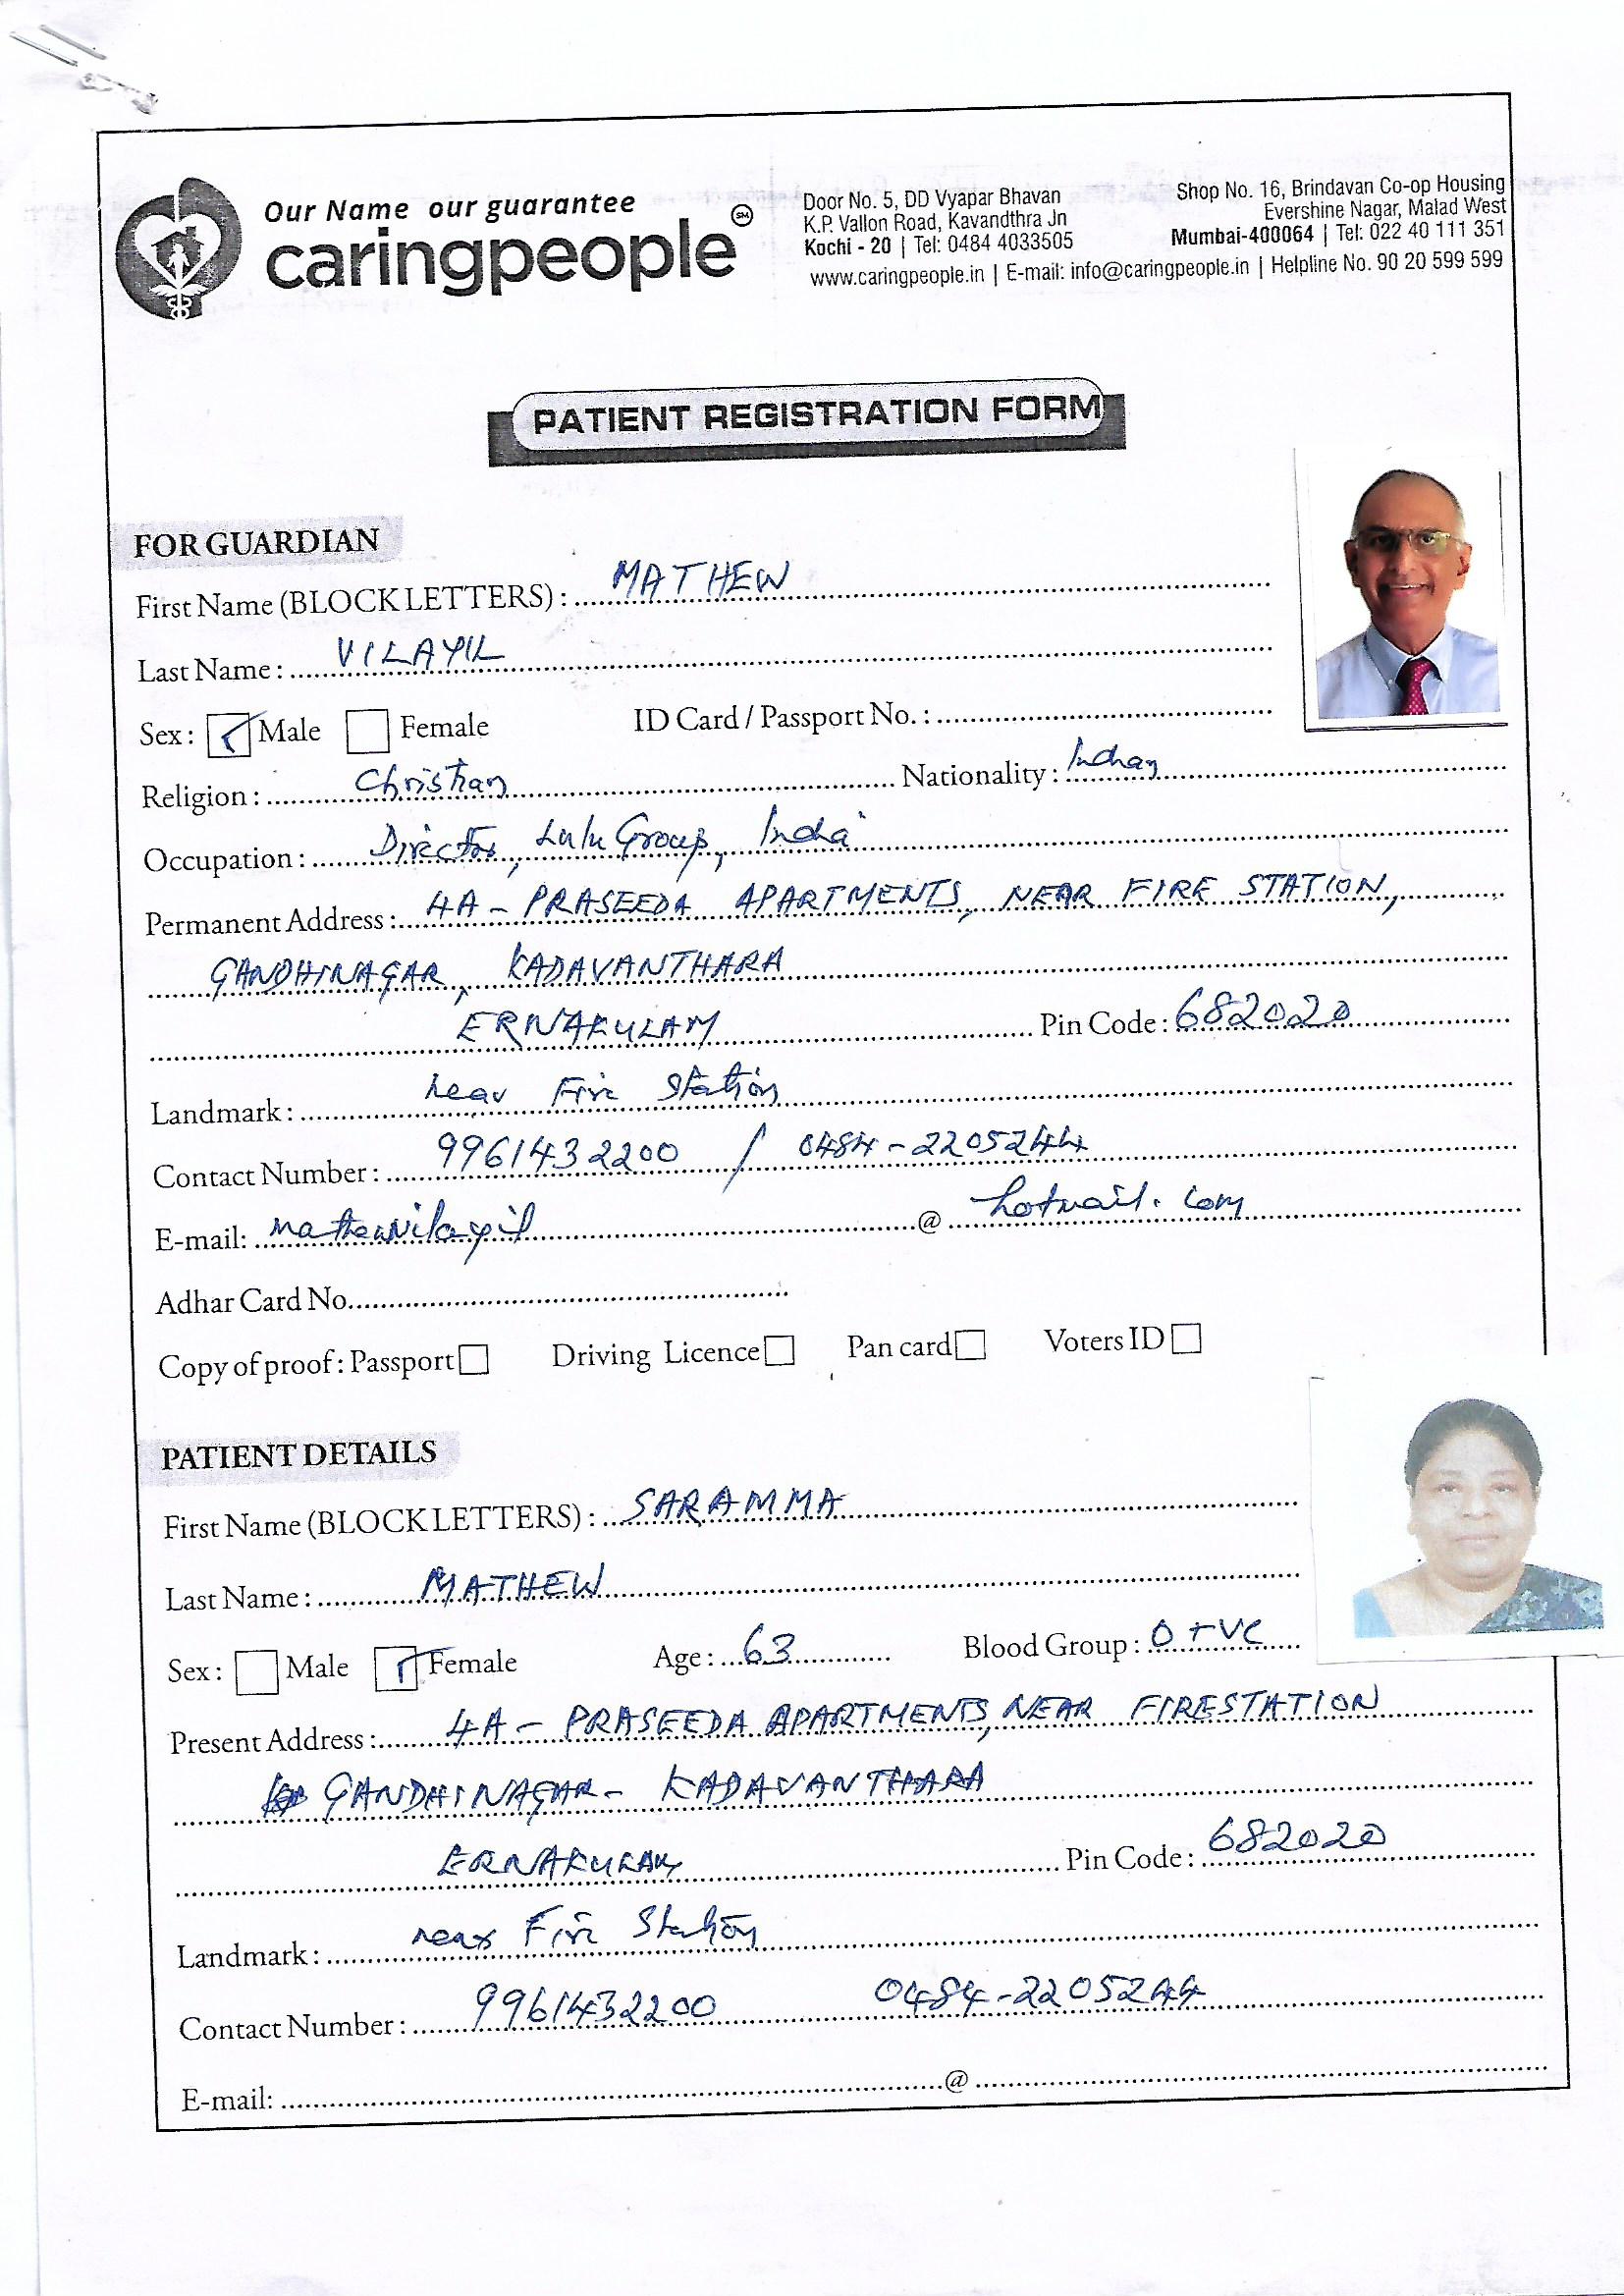 Our Name our guarantee
caringpeople SM
Door No. 5, DD Vyapar Bhavan
K.P. Vallon Road, Kavandthra Jn
Kochi - 20 | Tel: 0484 4033505
Shop No. 16, Brindavan Co-op Housing
Evershine Nagar, Malad West
Mumbai-400064 | Tel: 022 40 111 351
www.caringpeople.in | E-mail: info@caringpeople.in | Helpline No. 90 20 599 599
PATIENT REGISTRATION FORM
FOR GUARDIAN
First Name (BLOCK LETTERS) : MATHEW
Last Name : VILAYIL
Sex : Male Female ID Card / Passport No. :
Religion : Christian Nationality : Indian
Occupation : Director, Lulu Group, India
Permanent Address : 4A - PRASEEDA APARTMENTS, NEAR FIRE STATION,
GANDHINAGAR, KADAVANTHARA
ERNAKULAM Pin Code : 682020
Landmark : near Fire Station
Contact Number : 9961432200 / 0484-2205244
E-mail: mathewvilayil @ hotmail.com
Adhar Card No.
Copy of proof : Passport Driving Licence Pan card Voters ID
PATIENT DETAILS
First Name (BLOCK LETTERS) : SARAMMA
Last Name : MATHEW
Sex : Male Female Age : 63 Blood Group : O +ve
Present Address : 4A - PRASEEDA APARTMENTS, NEAR FIRESTATION
GANDHINAGAR - KADAVANTHARA
ERNAKULAM Pin Code : 682020
Landmark : near Fire Station
Contact Number : 9961432200 0484-2205244
E-mail: @